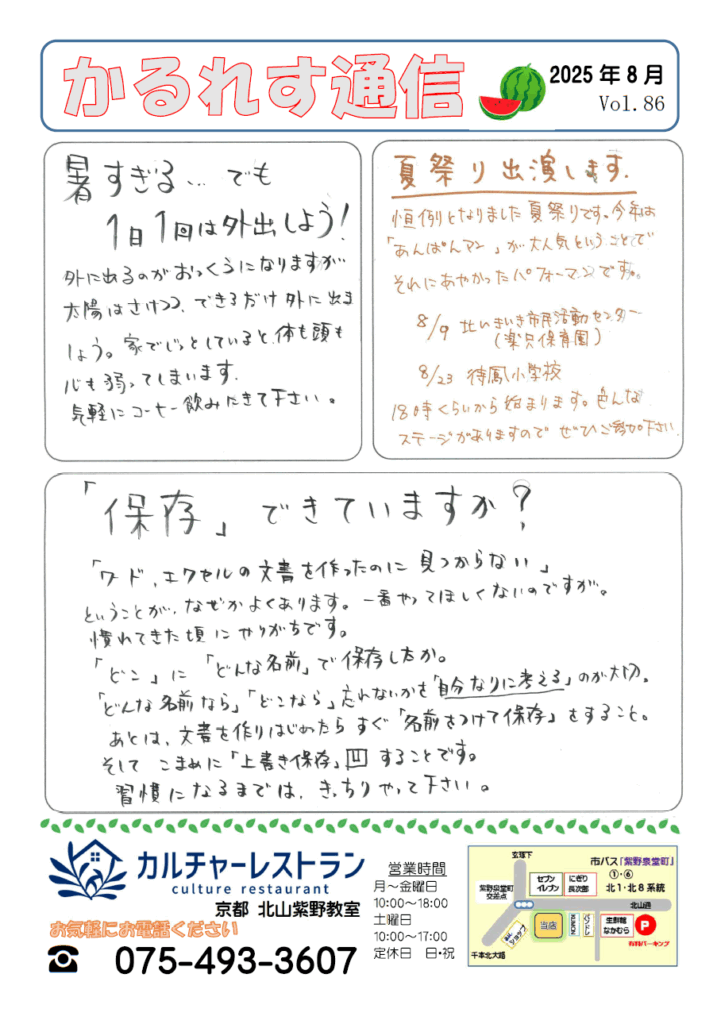 かるれす通信
2025年8月
Vol.86
暑すぎる…でも
1日1回は外出しよう！
外に出るのがおっくうになりますが
太陽はさけつつ、できるだけ外に出ま
しょう。家でじっとしていると、体も頭も
心も弱ってしまいます。
気軽にコーヒー飲みにきて下さい。
夏祭り出演します。
恒例となりました夏祭りです。今年は
「あんぱんマン」が大人気ということで
それにあやかったパフォーマンスです。
8/9 北いきいき市民活動センター
(楽只保育園)
8/23 待鳳小学校
18時くらいから始まります。色んな
ステージがありますので ぜひご参加下さい
「保存」できていますか？
「ワード、エクセルの文書を作ったのに見つからない」
ということが、なぜかよくあります。一番やってほしくないのですが。
慣れてきた頃にやりがちです。
「どこ」に「どんな名前」で保存したか。
「どんな名前なら」「どこなら」忘れないかを「自分なりに考える」のが大切。
あとは、文書を作りはじめたらすぐ「名前をつけて保存」をすること。
そして こまめに「上書き保存」することです。
習慣になるまでは、きっちりやって下さい。
カルチャーレストラン
culture restaurant
京都 北山紫野教室
お気軽にお電話ください
075-493-3607
営業時間
月～金曜日
10:00～18:00
土曜日
10:00～17:00
定休日 日・祝
玄琢下
市バス「紫野泉堂町」
①・⑥
北1・北8系統
紫野泉堂町
交差点
セブン
イレブン
にぎり
長次郎
北山通
当店
KUMON
生鮮館
なかむら
P
有料パーキング
千本北大路